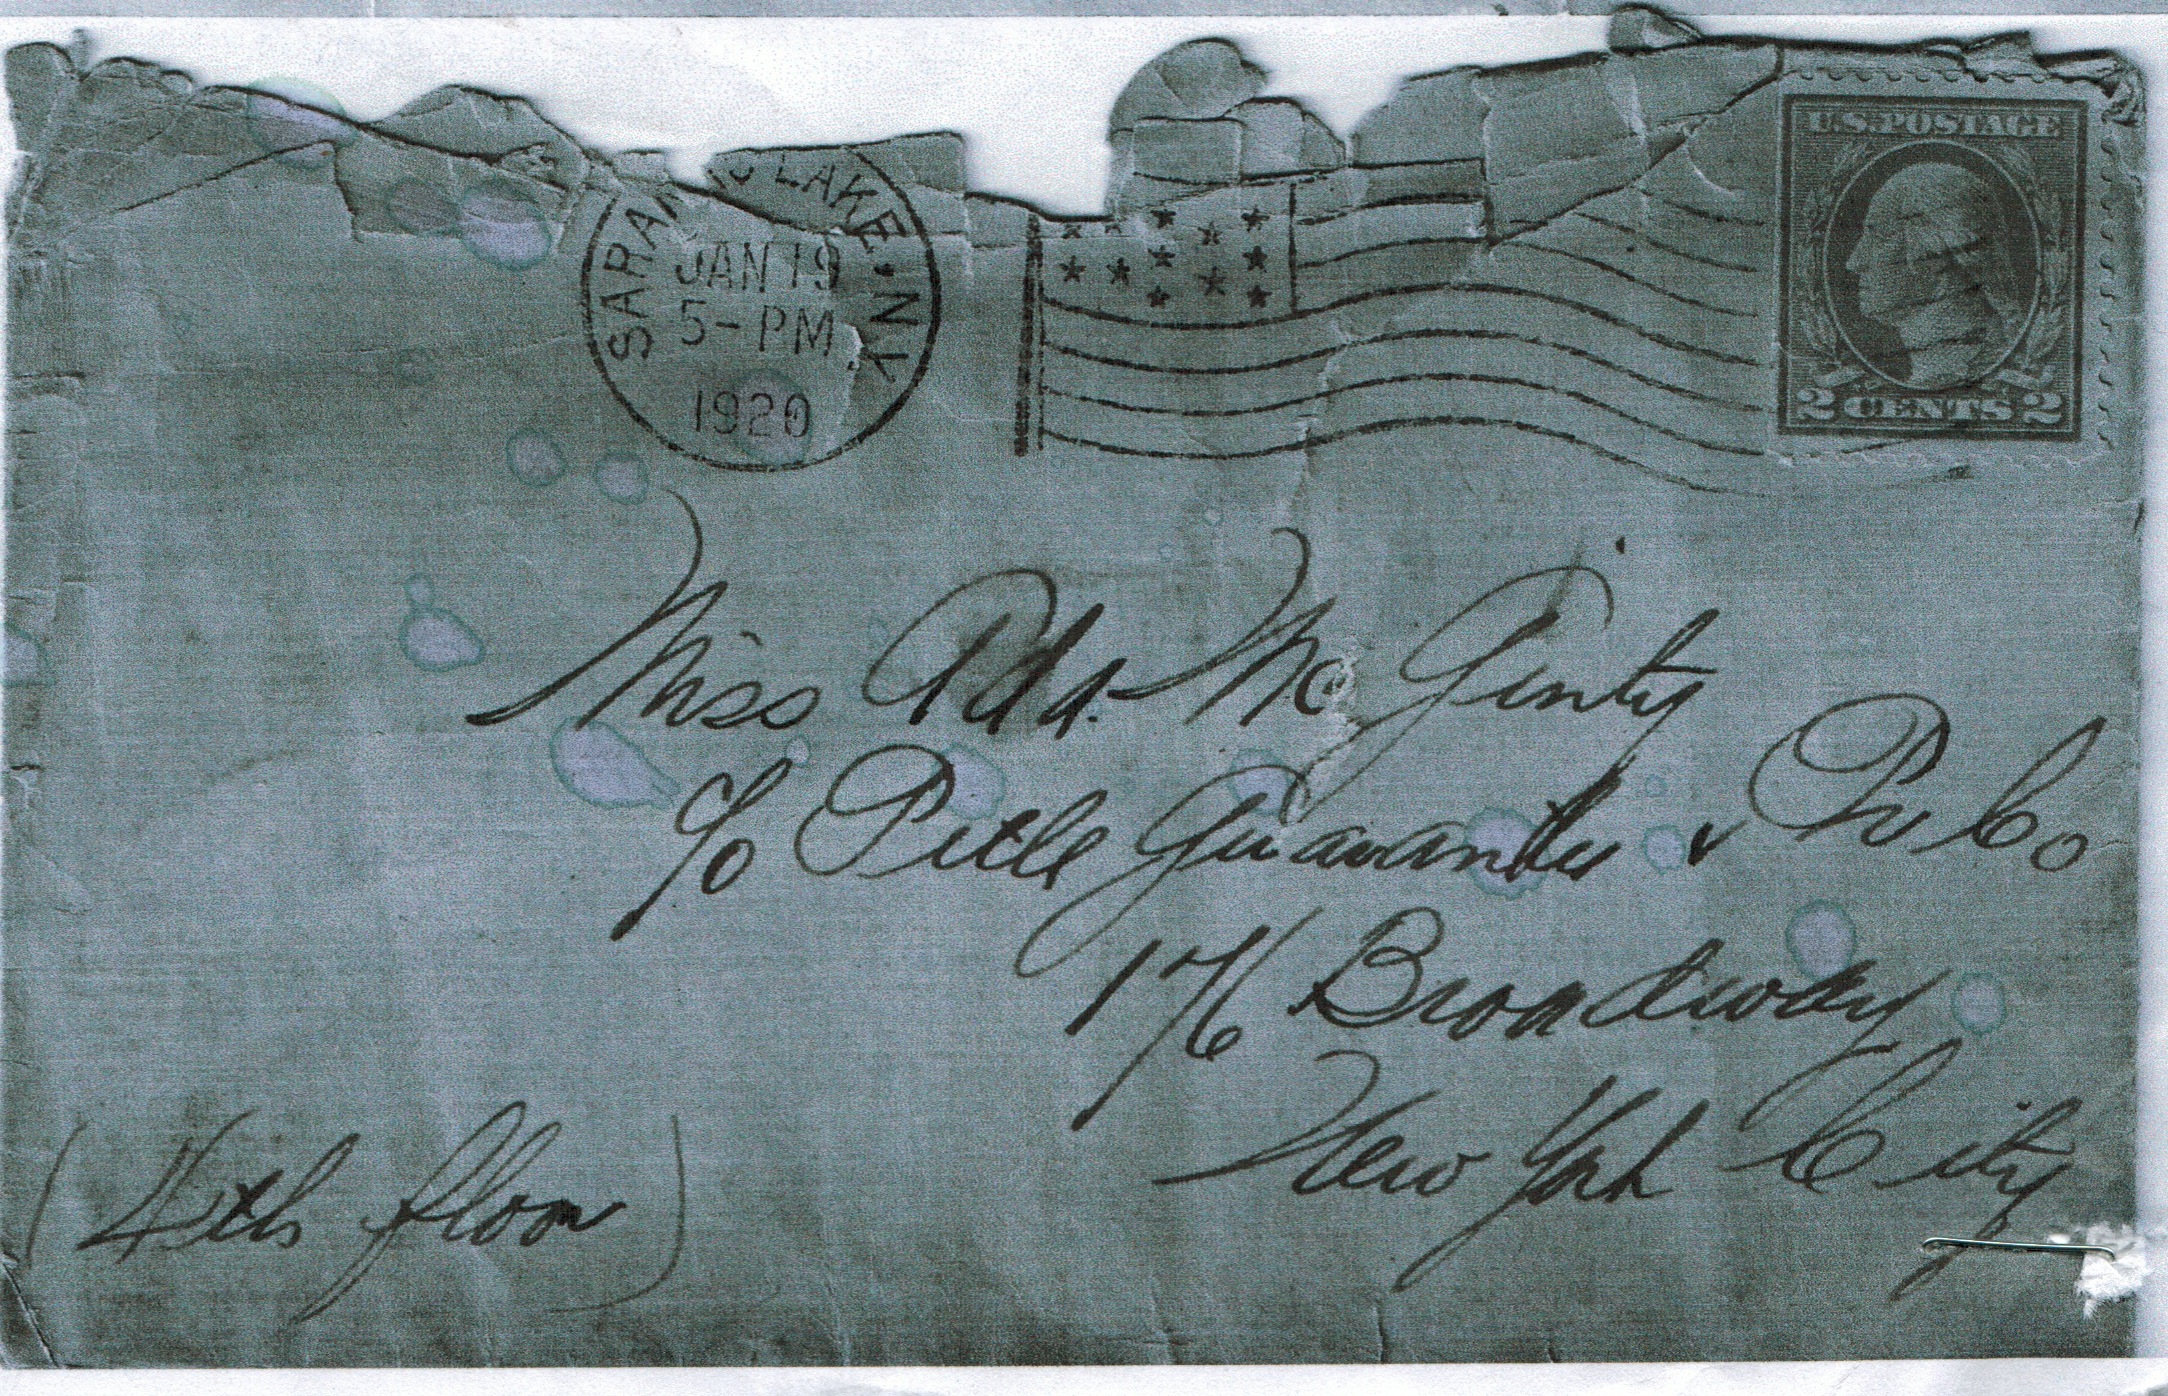 SARANAC LAKE • N.Y.
JAN 19
5 - PM
1920
U.S. POSTAGE
2 CENTS 2
Miss Ada Mc Ginty
c/o Title Guarantee & Tr Co
176 Broadway
New York City
(4th floor)